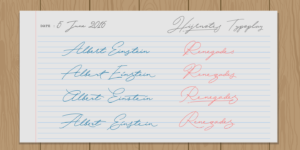 DATE: 5 June 2018 Hipnotis Typeface
Albert Einstein Renegades
Albert Einstein Renegades
Albert Einstein Renegades
Albert Einstein Renegades